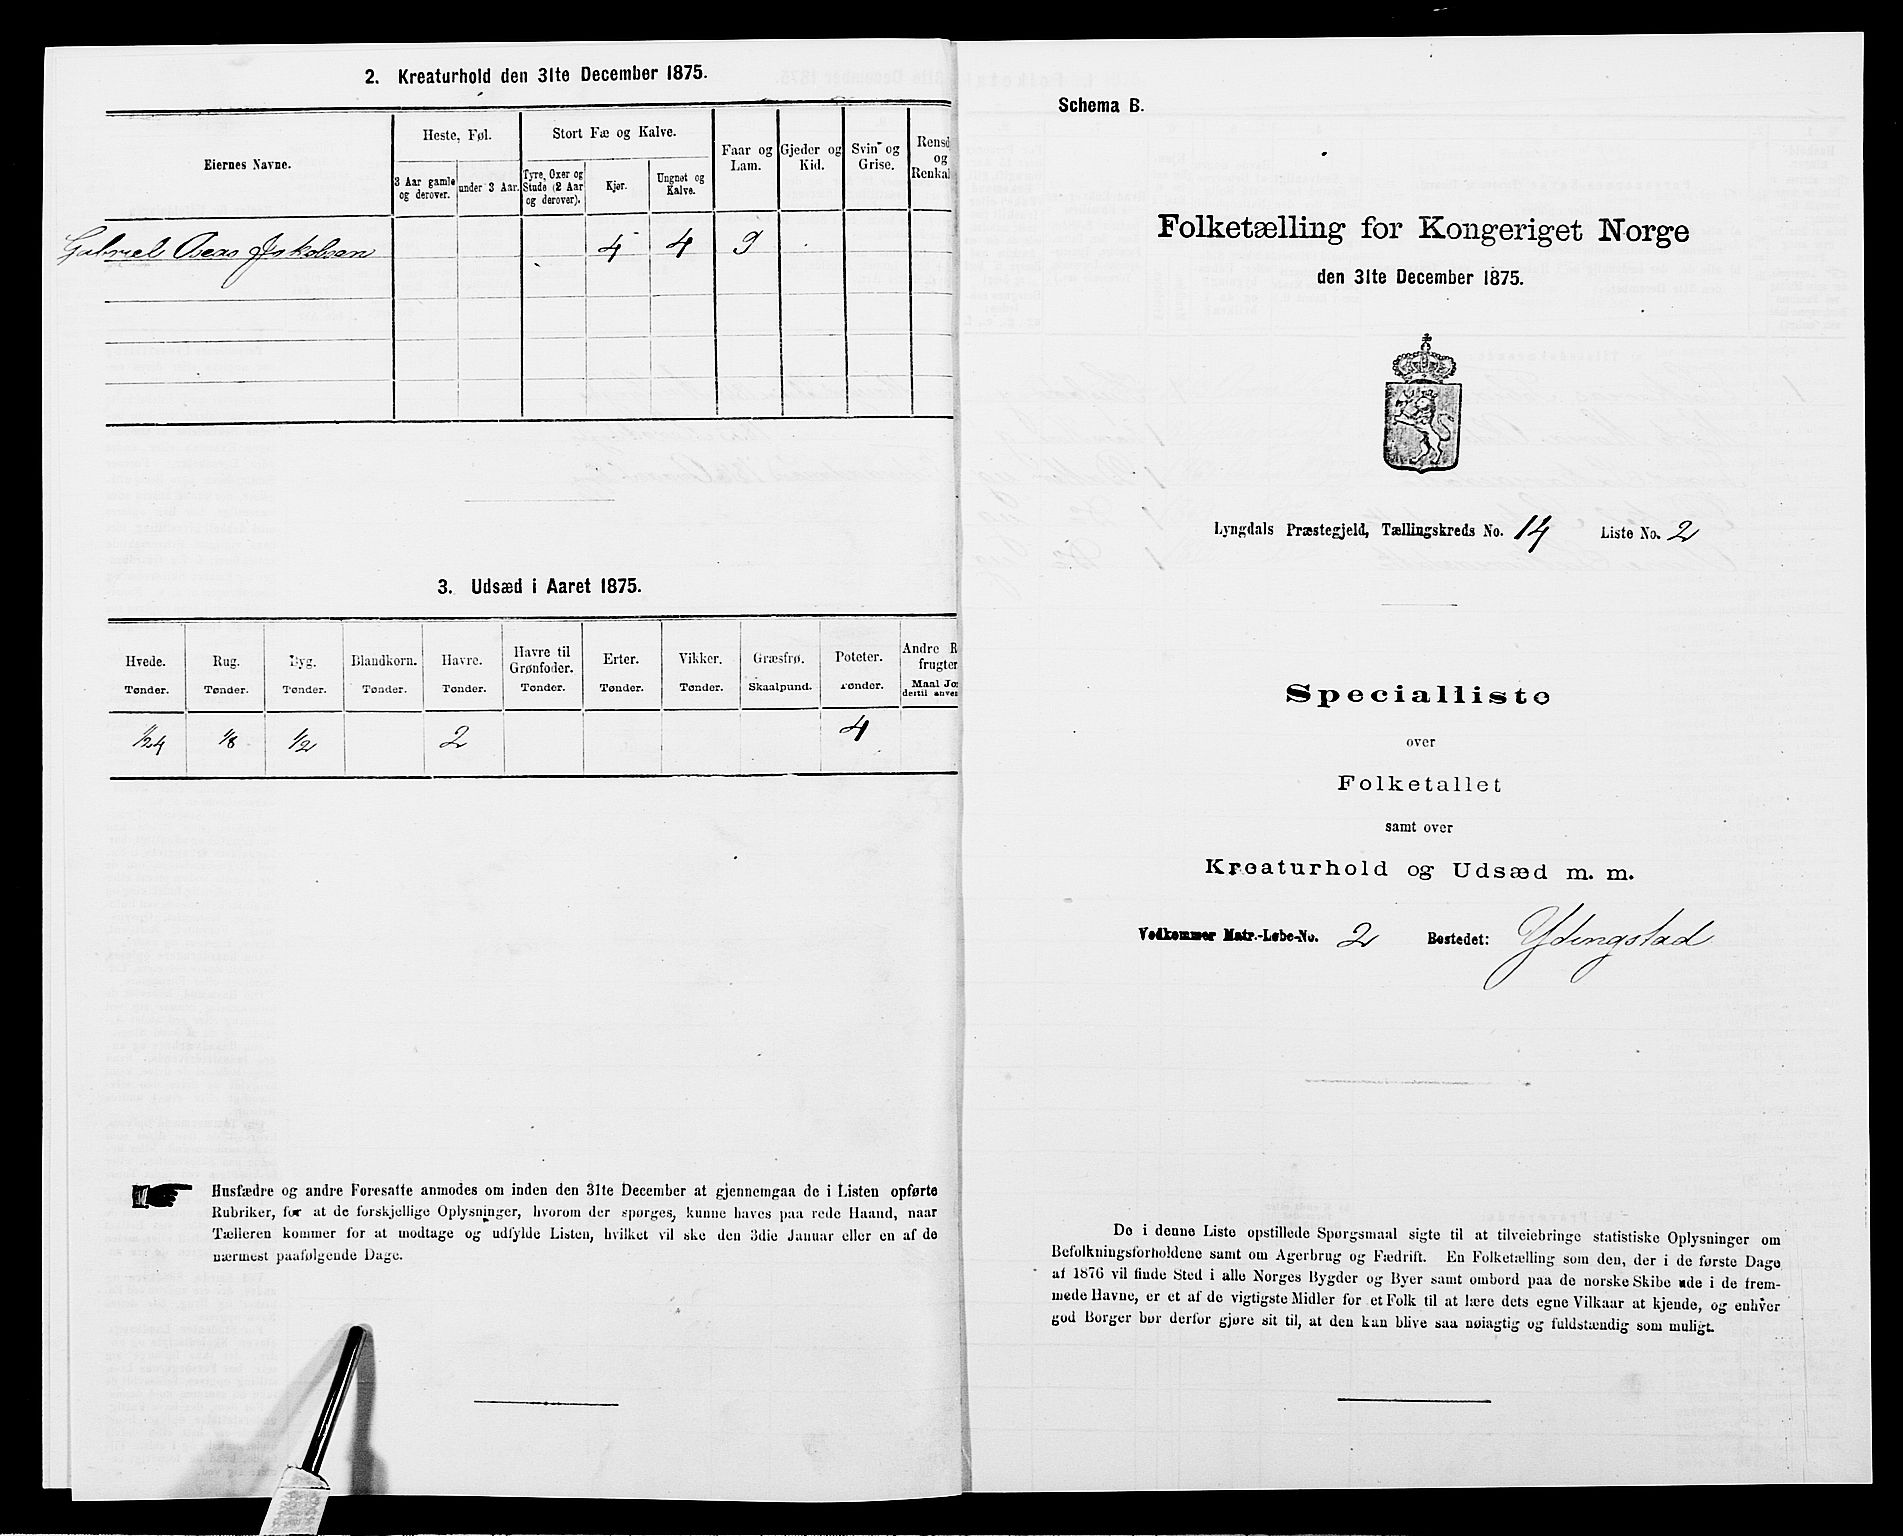 2. Kreaturhold den 31te December 1875.
Eiernes Navne.
Heste, Føl.
3 Aar gamle og derover.
under 3 Aar.
Stort Fæ og Kalve.
Tyre, Oxer og Stude (2 Aar og derover).
Kjør.
Ungnøt og Kalve.
Faar og Lam.
Gjeder og Kid.
Svin og Grise.
Rensd
og
Renkal
Gabriel Jakobsen 4 4 9
3. Udsæd i Aaret 1875.
Hvede. Tønder.
Rug. Tønder.
Byg. Tønder.
Blandkorn. Tønder.
Havre. Tønder.
Havre til Grønfoder. Tønder.
Erter. Tønder.
Vikker. Tønder.
Græsfrø. Skaalpund.
Poteter. Tønder.
Andre R
frugter
Maal Jo
dertil anven
1/24 1/8 1/2 2 4
Husfædre og andre Foresatte anmodes om inden den 31te December at gjennemgaa de i Listen opførte
Rubriker, for at de forskjellige Oplysninger, hvorom der spørges, kunne haves paa rede Haand, naar
Tælleren kommer for at modtage og udfylde Listen, hvilket vil ske den 3die Januar eller en af de
nærmest paafølgende Dage.
Schema B.
Folketælling for Kongeriget Norge
den 31te December 1875.
Lyngdals Præstegjeld, Tællingskreds No. 14 Liste No. 2
Specialliste
over
Folketallet
samt over
Kreaturhold og Udsæd m. m.
Vedkommer Matr.-Løbe-No. 2 Bostedet: Ydingstad
De i denne Liste opstillede Spørgsmaal sigte til at tilveiebringe statistiske Oplysninger om
Befolkningsforholdene samt om Agerbrug og Fædrift. En Folketælling som den, der i de første Dage
af 1876 vil finde Sted i alle Norges Bygder og Byer samt ombord paa de norske Skibe ude i de frem-
mede Havne, er et af de vigtigste Midler for et Folk til at lære dets egne Vilkaar at kjende, og enhver
god Borger bør derfor gjøre sit til, at den kan blive saa nøiagtig og fuldstændig som muligt.